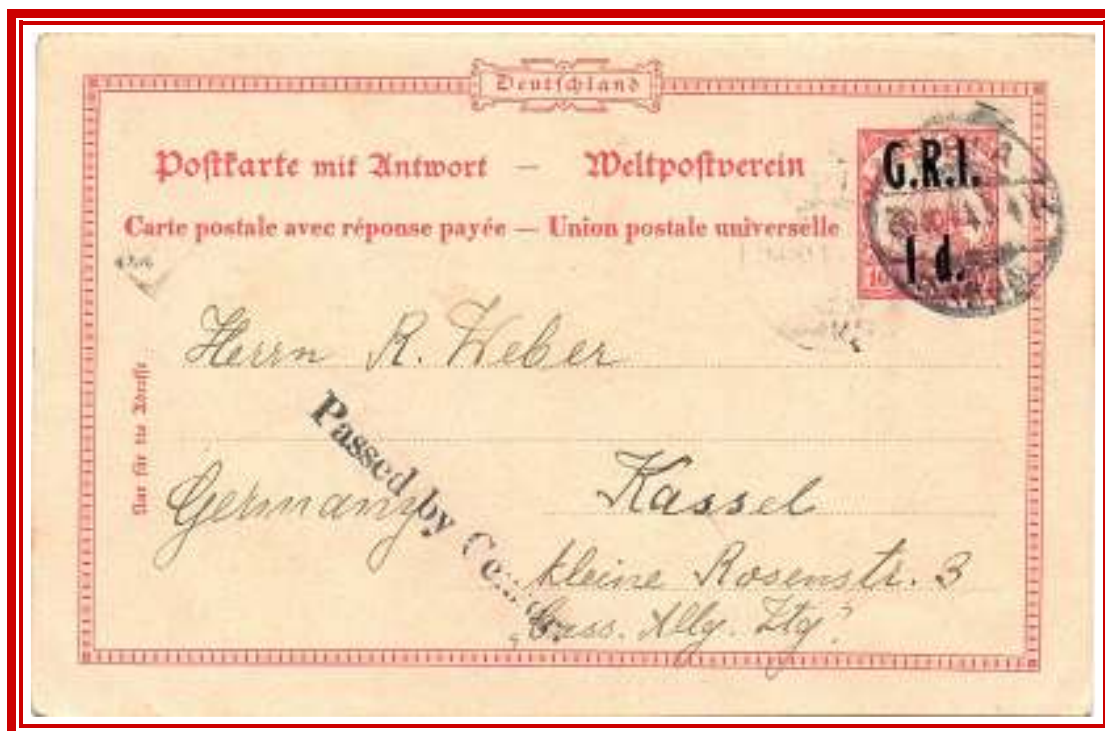 Deutschland
Postkarte mit Antwort — Weltpostverein
Carte postale avec réponse payée — Union postale universelle
G.R.I.
1 d.
Nur für die Adresse
Herrn R. Weber
Passed by
Germany
Kassel
kleine Rosenstr. 3
Cass. Allg. Ztg.